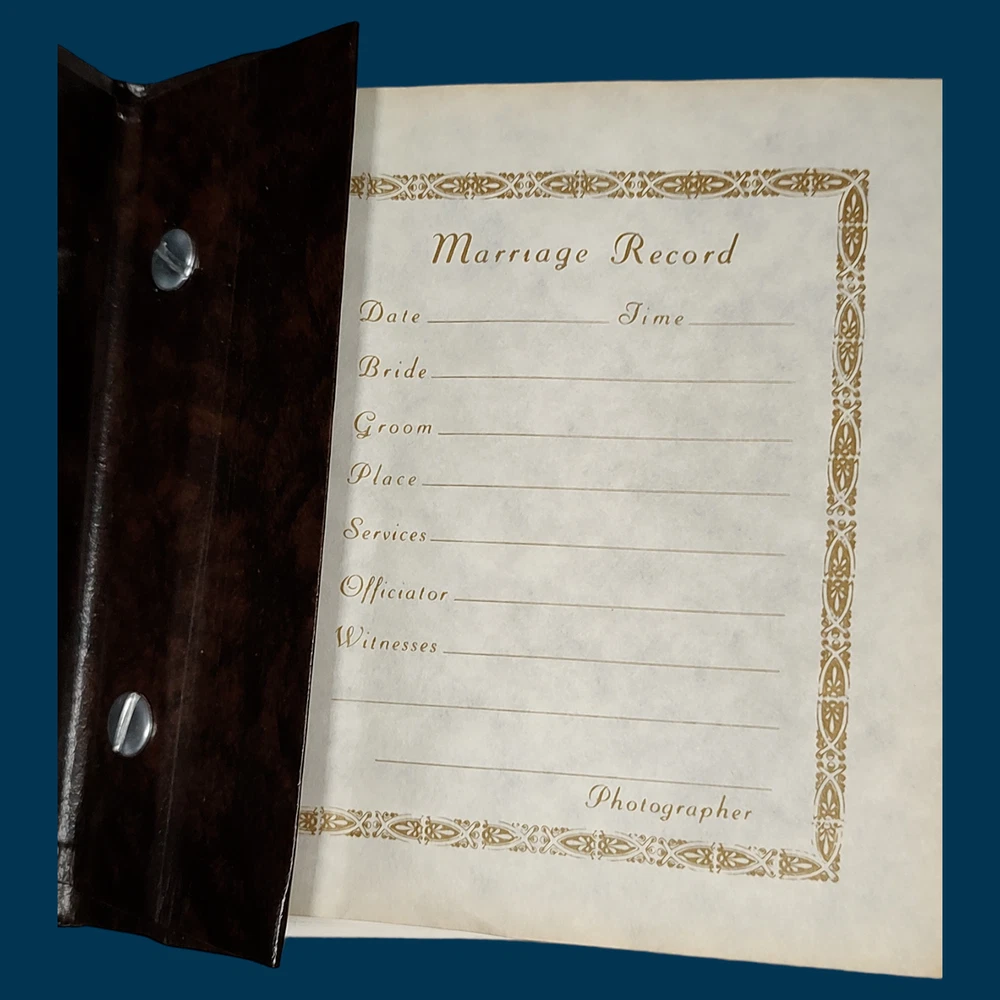 Marriage Record
Date Time
Bride
Groom
Place
Services
Officiator
Witnesses
Photographer